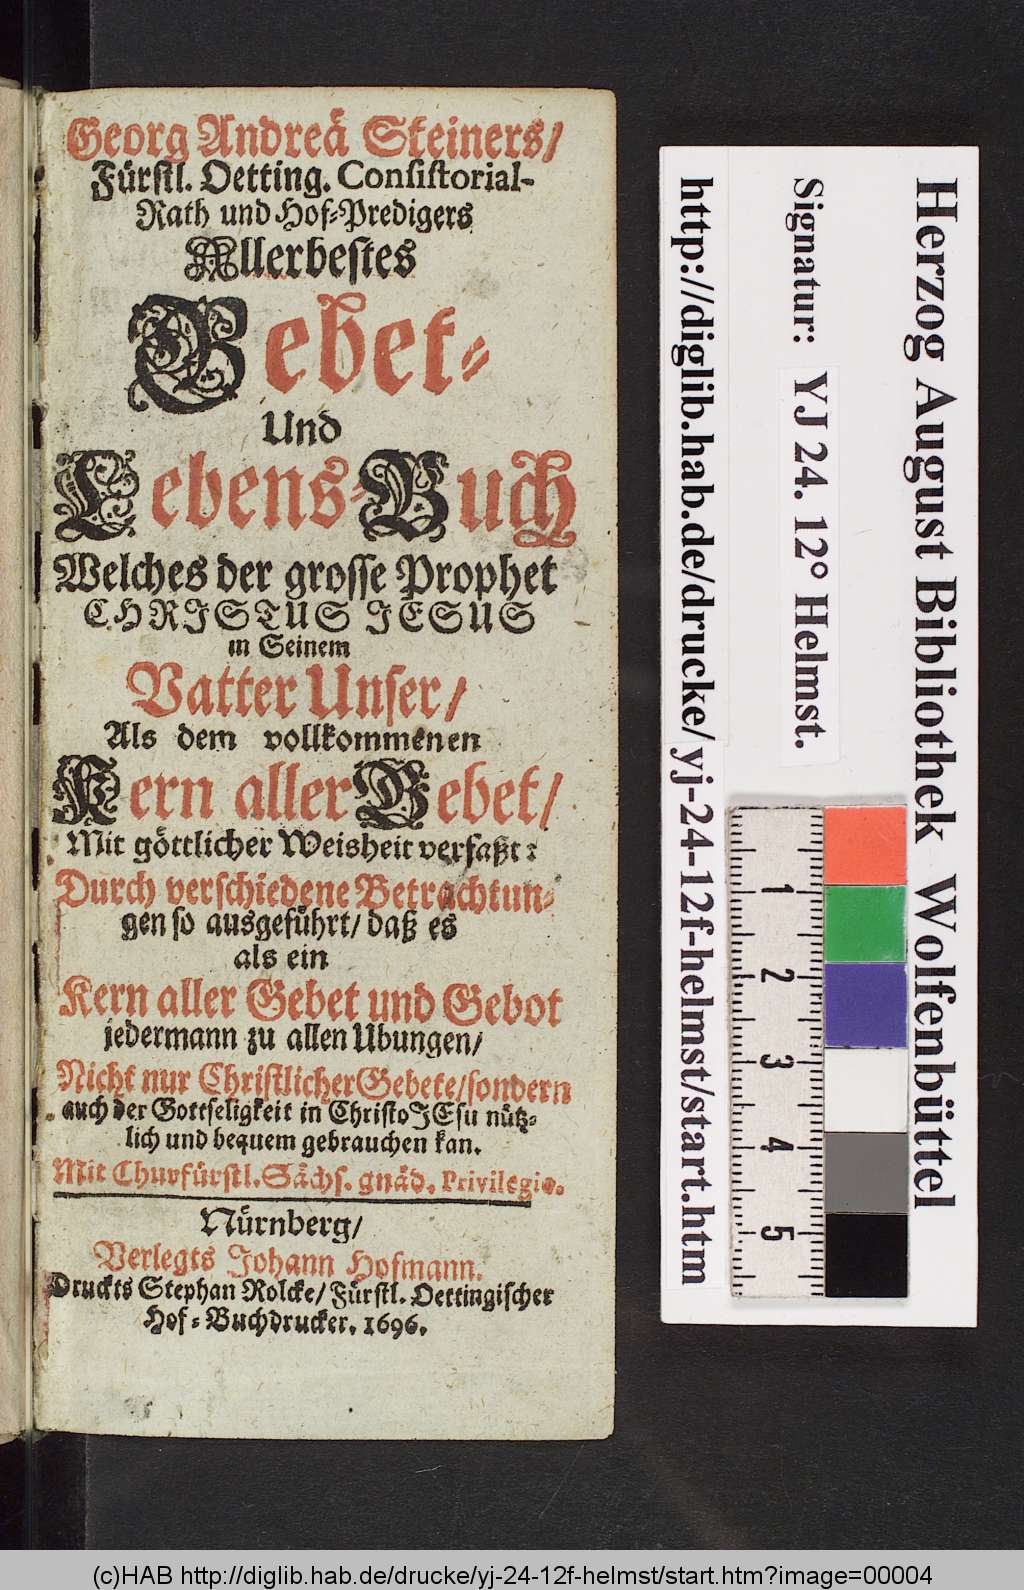 Georg Andreä Steiners/
Fürstl. Oetting. Consistorial-
Rath und Hof-Predigers
Allerbestes
Gebet-
Und
Lebens-Buch
Welches der grosse Prophet
CHRISTUS JESUS
in Seinem
Vatter Unser/
Als dem vollkommenen
Kern aller Gebet/
Mit göttlicher Weisheit verfaßt:
Durch verschiedene Betrachtun-
gen so ausgeführt/ daß es
als ein
Kern aller Gebet und Gebot
jedermann zu allen Ubungen/
Nicht nur Christlicher Gebete/ sondern
auch der Gottseligkeit in Christo JEsu nütz-
lich und bequem gebrauchen kan.
Mit Churfürstl. Sächs. gnäd. Privilegio.
Nürnberg/
Verlegts Johann Hofmann.
Druckts Stephan Rolcke/ Fürstl. Oettingischer
Hof-Buchdrucker. 1696.
Herzog August Bibliothek Wolfenbüttel
Signatur: YJ 24. 12° Helmst.
http://diglib.hab.de/drucke/yj-24-12f-helmst/start.htm
1
2
3
4
5
(c)HAB http://diglib.hab.de/drucke/yj-24-12f-helmst/start.htm?image=00004